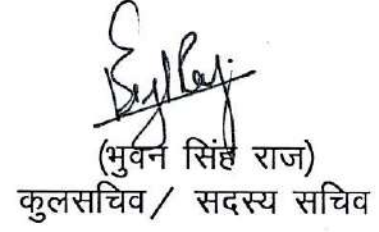 (भुवन सिंह राज)
कुलसचिव/ सदस्य सचिव